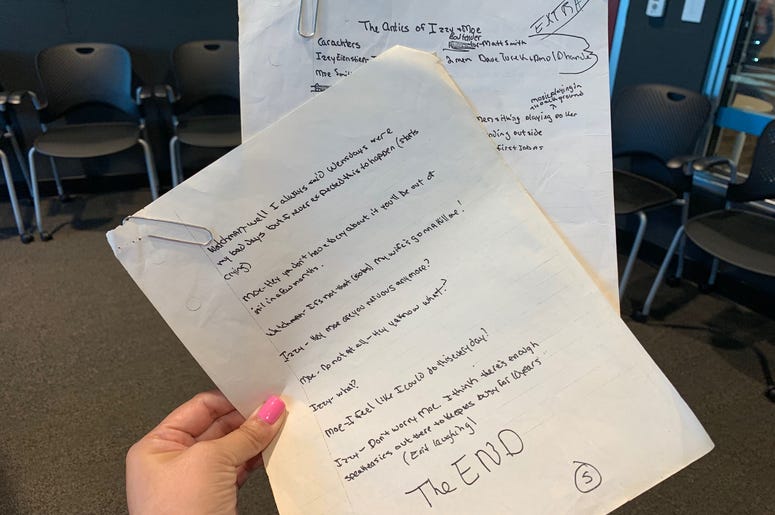 EXTRA
The Antics of Izzy + Moe
Carachters
Matt Smith
Izzy Einstien
Dave Turek + Arnold
Moe Smi
music playing in
background
men sitting playing poker
nding outside
first Job as
Watchman-well I always said Wensdays were
my bad days but I never expected this to happen (starts
crying)
Moe-Hey ya don't hav to cry about it you'll be out of
jail in a few months.
Watchman-It's not that (sobs) My wife's gonna kill me!
Izzy-Hey Moe are you nervous anymore?
Moe-No not at all-Hey ya know what?
Izzy-What?
Moe-I feel like I could do this everyday!
Izzy-Don't worry Moe. I think there's enough
speakeasies out there to keep us busy for 10 years.
(Exit laughing)
The END
5